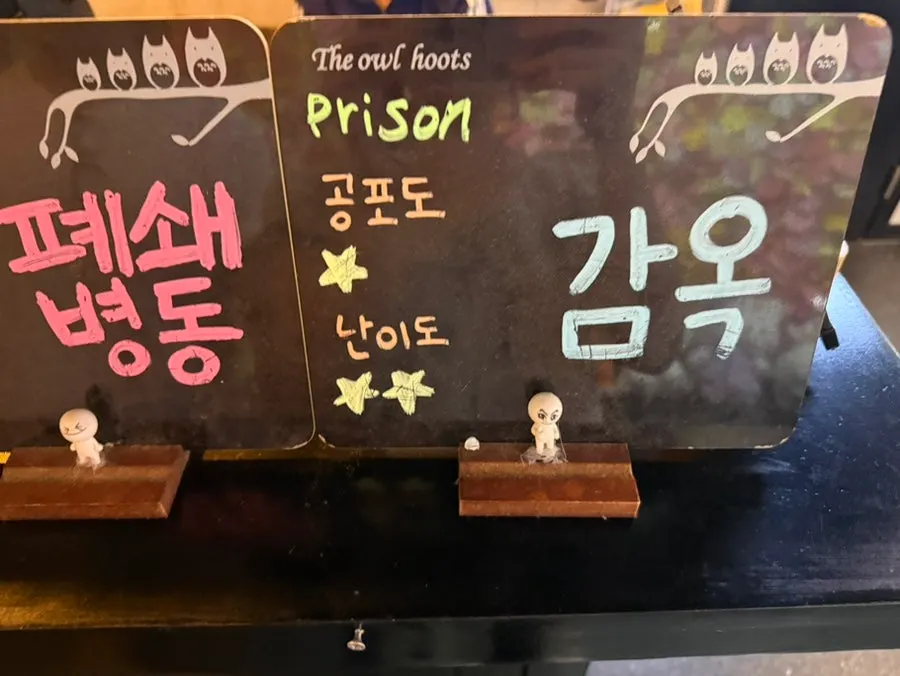 폐쇄
병동
The owl hoots
Prison
공포도
난이도
감옥